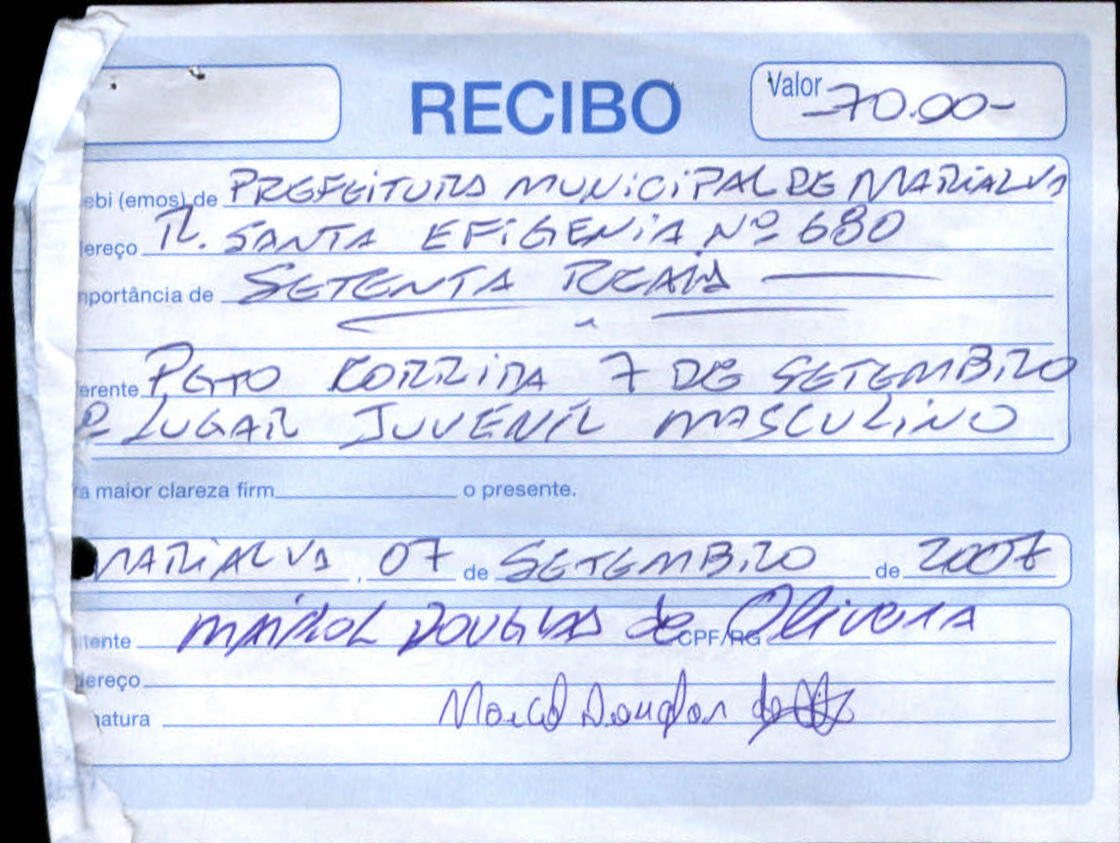 RECIBO
Valor 70.00-
ebi (emos) de PREFEITURA MUNICIPAL DE MARIALVA
ereço R. SANTA EFIGENIA Nº 680
nportância de SETENTA REAIS
erente PGTO CORRIDA 7 DE SETEMBRO
º LUGAR JUVENIL MASCULINO
a maior clareza firm o presente.
MARIALVA, 07 de SETEMBRO de 2007
itente DOUGLAS de Oliveira CPF/RG
dereço
natura Douglas de